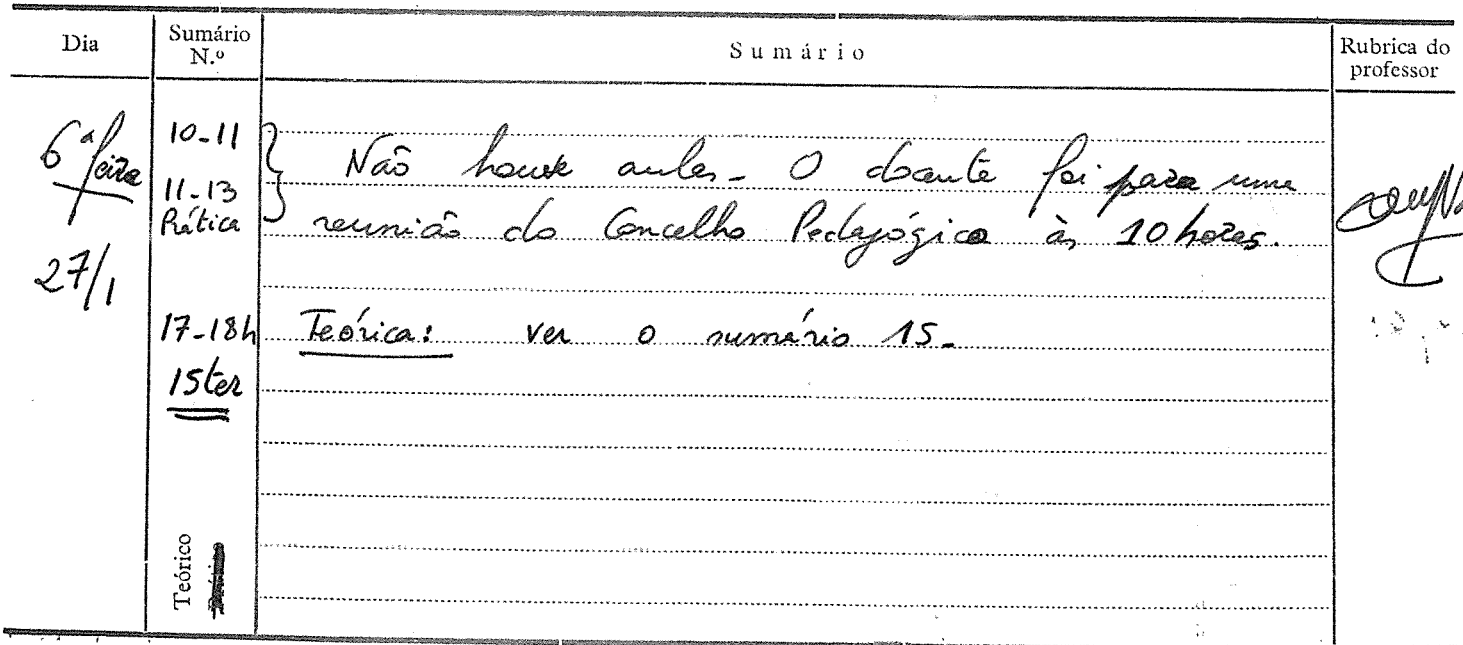 Dia
Sumário N.º
Sumário
Rubrica do professor
6ª feira
27/1
10-11
11-13
Prática
Não houve aulas - O docente foi para uma
reunião do Concelho Pedagógico às 10 horas.
17-18h
Teórica: ver o sumário 15-
15ter
Teórico